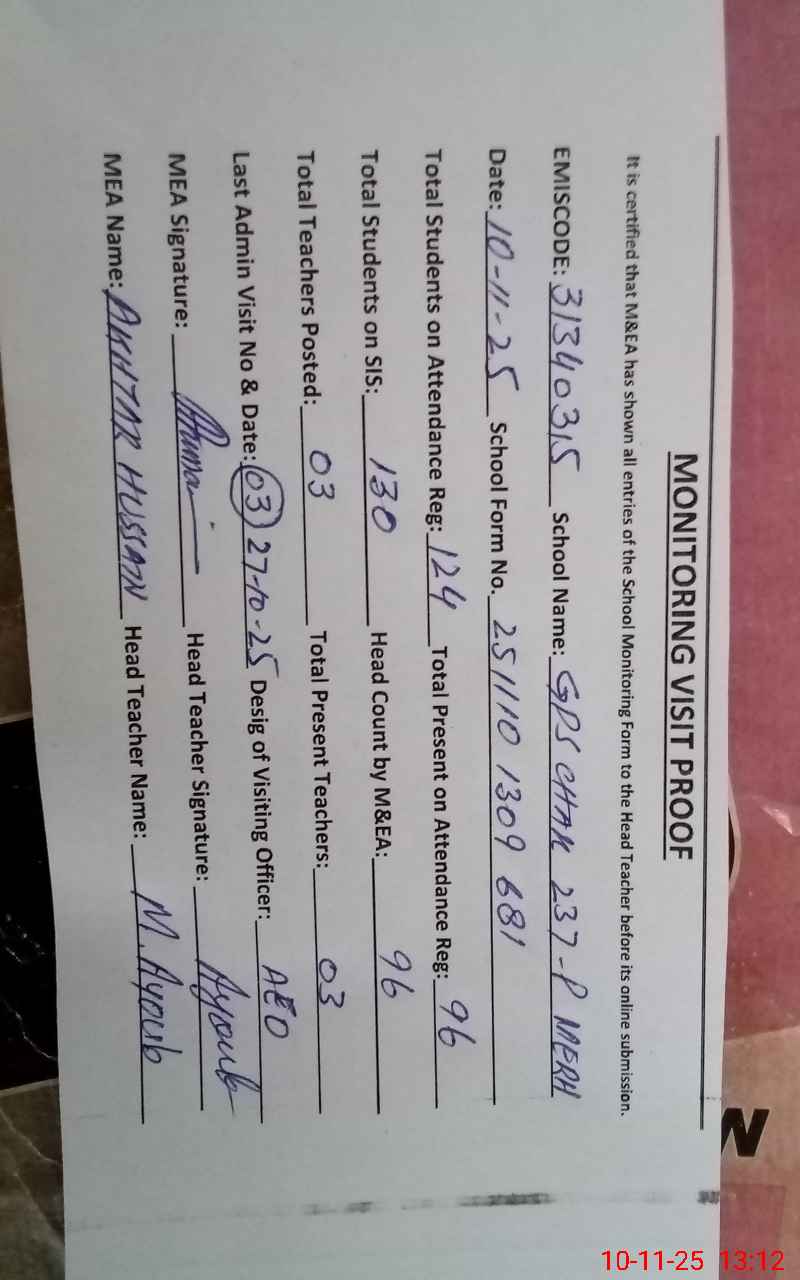 MONITORING VISIT PROOF
It is certified that M&EA has shown all entries of the School Monitoring Form to the Head Teacher before its online submission.
EMISCODE: 31340315 School Name: GPS CHAK 237-P MERH
Date: 10-11-25 School Form No. 251110 1309 681
Total Students on Attendance Reg: 124 Total Present on Attendance Reg: 96
Total Students on SIS: 130 Head Count by M&EA: 96
Total Teachers Posted: 03 Total Present Teachers: 03
Last Admin Visit No & Date: 03 27-10-25 Desig of Visiting Officer: AEO
MEA Signature: Head Teacher Signature: Ayoub
MEA Name: AKHTAR HUSSAIN Head Teacher Name: M. Ayoub
10-11-25 13:12